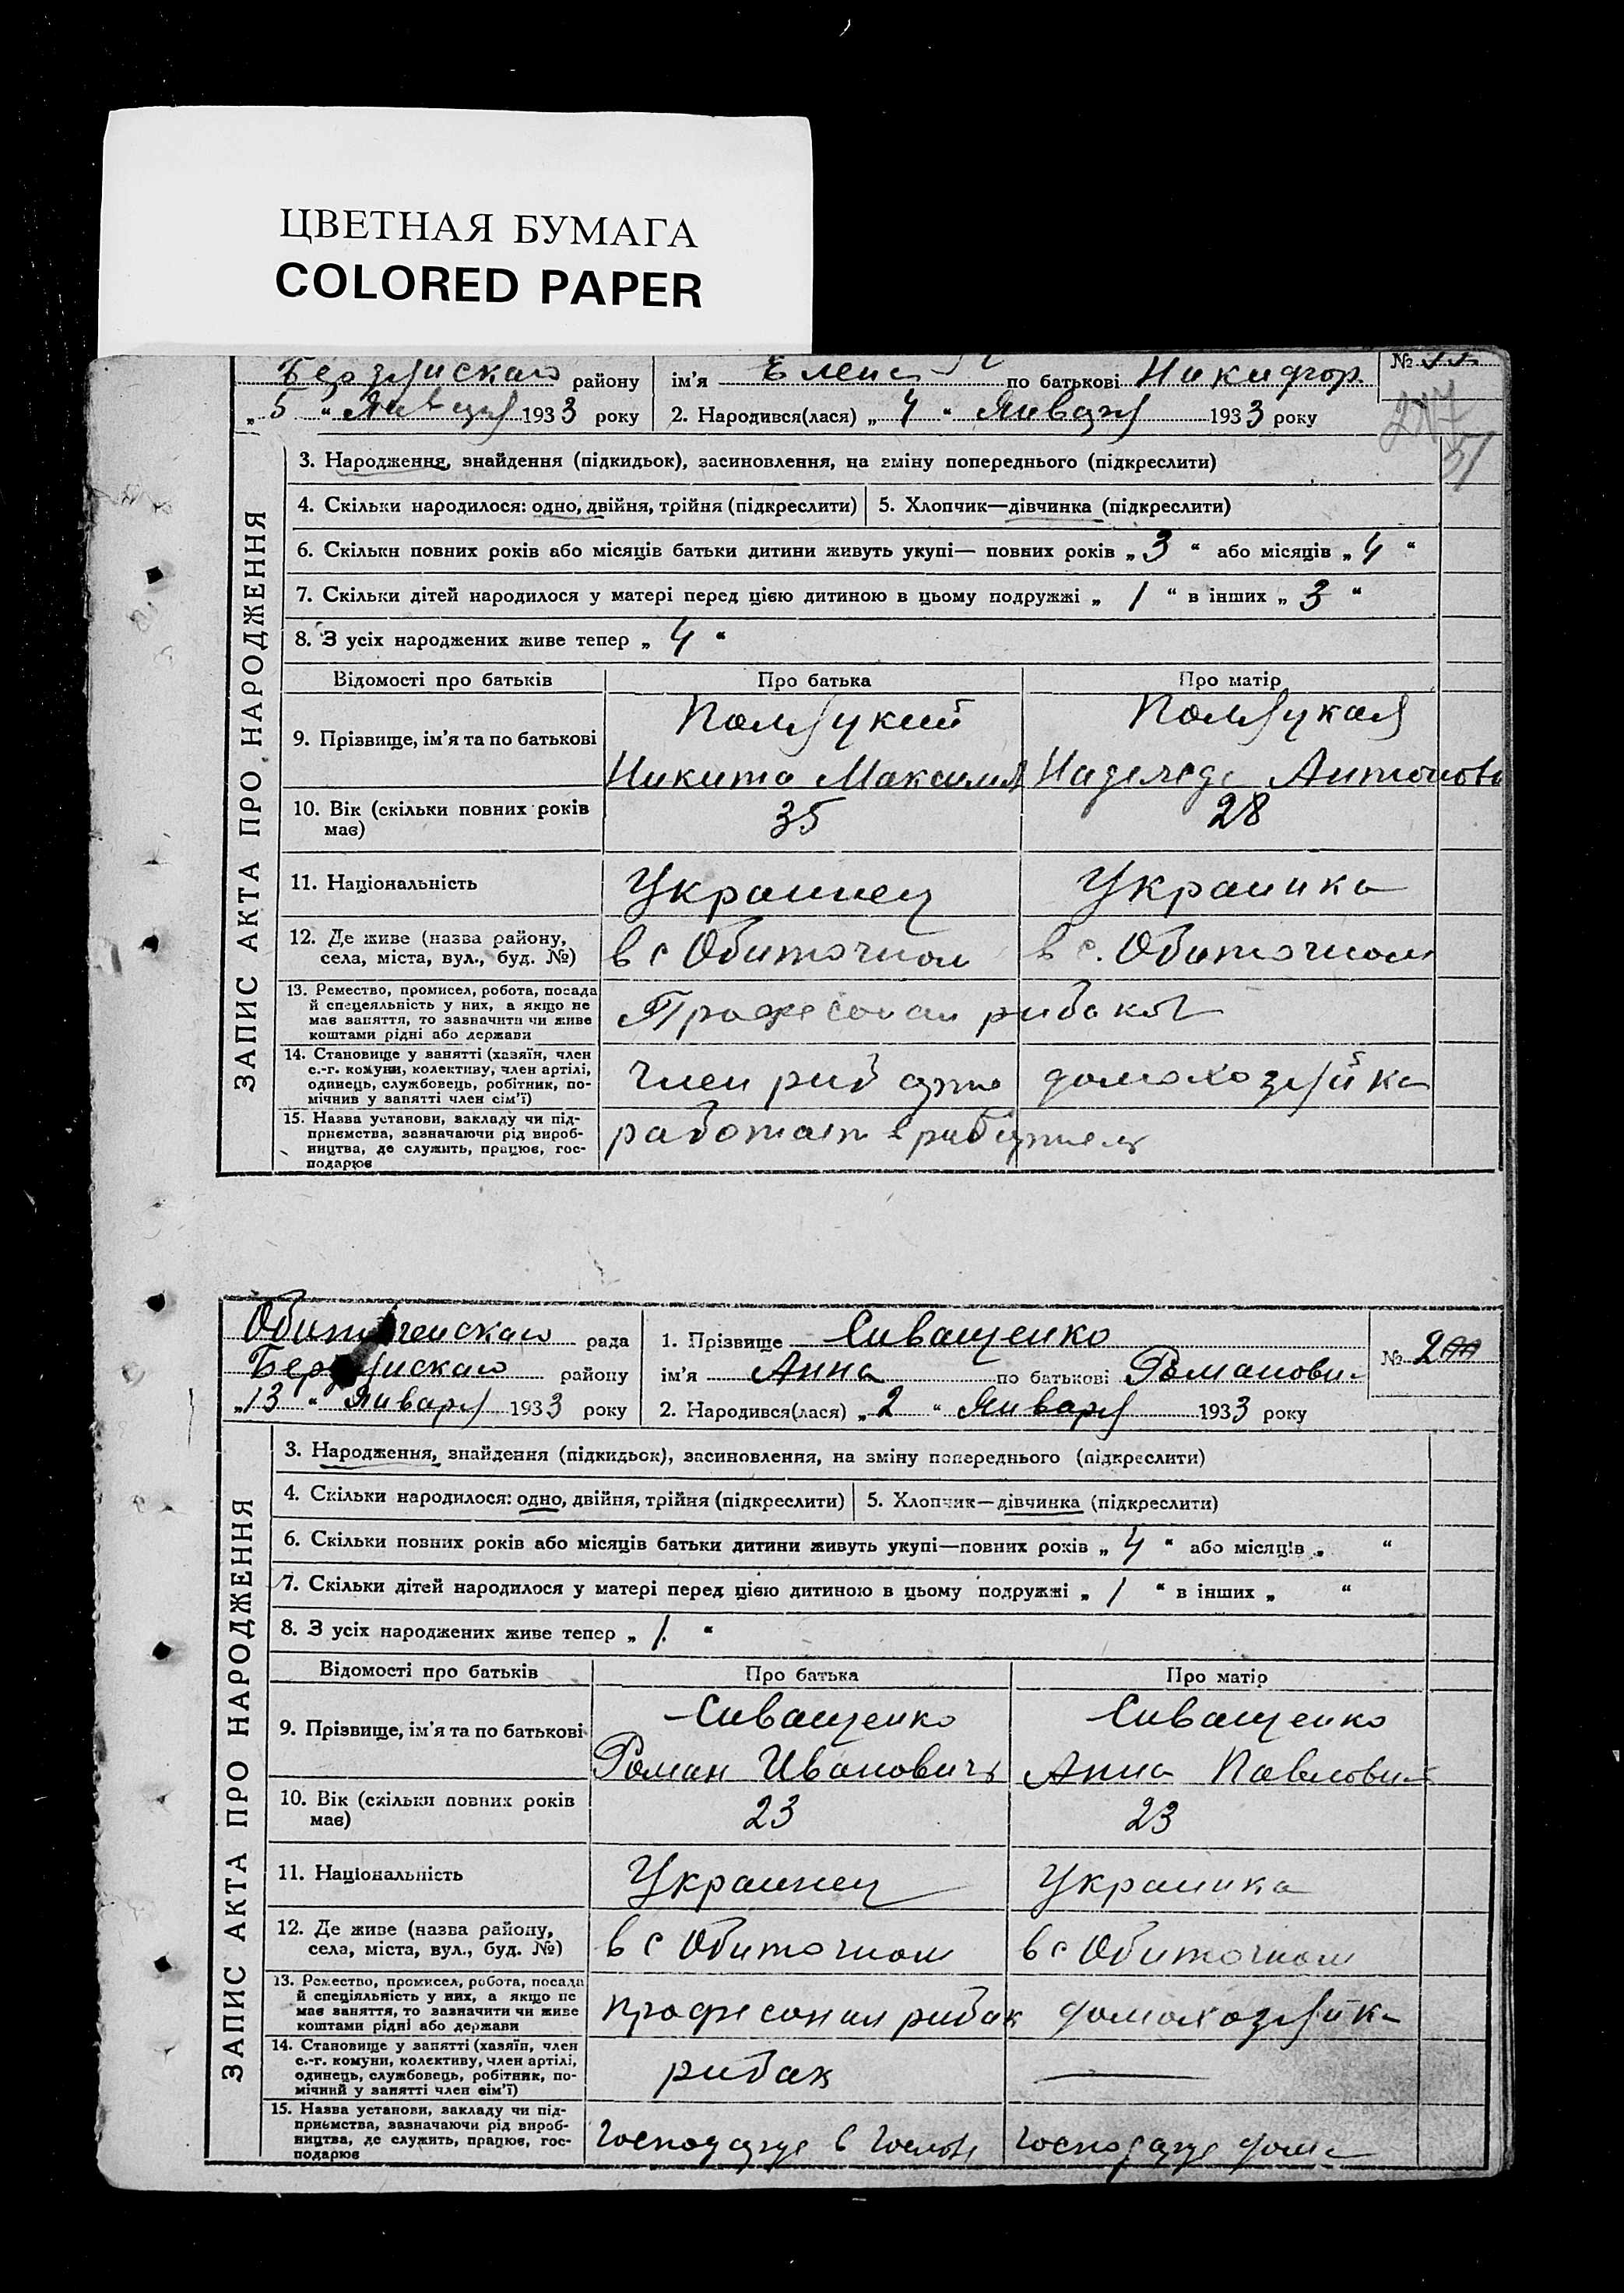 ЦВЕТНАЯ БУМАГА
COLORED PAPER
району ім'я по батькові Никифор. №
„ 5 “ Января 1933 року 2. Народився(лася) „ 4 “ Января 1933 року
3. Народження, знайдення (підкидьок), засиновлення, на зміну попереднього (підкреслити)
4. Скільки народилося: одно, двійня, трійня (підкреслити) 5. Хлопчик—дівчинка (підкреслити)
6. Скільки повних років або місяців батьки дитини живуть укупі— повних років „ 3 “ або місяців „ 4 “
7. Скільки дітей народилося у матері перед цією дитиною в цьому подружжі „ 1 “ в інших „ 3 “
8. З усіх народжених живе тепер „ 4 “
ЗАПИС АКТА ПРО НАРОДЖЕННЯ
Відомості про батьків Про батька Про матір
9. Прізвище, ім'я та по батькові
Никита Надежда
10. Вік (скільки повних років 35 28
має)
11. Національність Украинец Украинка
12. Де живе (назва району, в с Обиточном в с. Обиточном
села, міста, вул., буд. №)
13. Ремество, промисел, робота, посада
й спецеяльність у них, а якщо не
має заняття, то зазначити чи живе
коштами рідні або держави
14. Становище у занятті (хазяїн, член
с.-г. комуни, колективу, член артілі, член риб домохозяйка
одинець, службовець, робітник, по-
мічнив у занятті член сім'ї)
15. Назва установи, закладу чи під-
приємства, зазначаючи рід вироб- работает в
ництва, де служить, працює, гос-
подарює
рада 1. Прізвище Сиващенко
району ім'я Анна по батькові Романовна № 2
„ 13 “ Января 1933 року 2. Народився(лася) „ 2 “ Января 1933 року
3. Народження, знайдення (підкидьок), засиновлення, на зміну попереднього (підкреслити)
4. Скільки народилося: одно, двійня, трійня (підкреслити) 5. Хлопчик—дівчинка (підкреслити)
6. Скільки повних років або місяців батьки дитини живуть укупі—повних років „ 4 “ або місяців „ “
7. Скільки дітей народилося у матері перед цією дитиною в цьому подружжі „ 1 “ в інших „ “
8. З усіх народжених живе тепер „ 1. “
ЗАПИС АКТА ПРО НАРОДЖЕННЯ
Відомості про батьків Про батька Про матір
Сиващенко Сиващенко
9. Прізвище, ім'я та по батькові
Роман Иванович Анна Павловна
10. Вік (скільки повних років 23 23
має)
11. Національність Украинец Украинка
12. Де живе (назва району, в с Обиточном в с Обиточном
села, міста, вул., буд. №)
13. Ремество, промисел, робота, посада
й спеціяльність у них, а якщо не
має заняття, то зазначити чи живе рибак домохозяйка
коштами рідні або держави
14. Становище у занятті (хазяїн, член
с.-г. комуни, колективу, член артілі, рибак —
одинець, службовець, робітник, по-
мічний у занятті член сім'ї)
15. Назва установи, закладу чи під-
приємства, зазначаючи рід вироб-
ництва, де служить, працює, гос- господарує в господарує дома
подарює